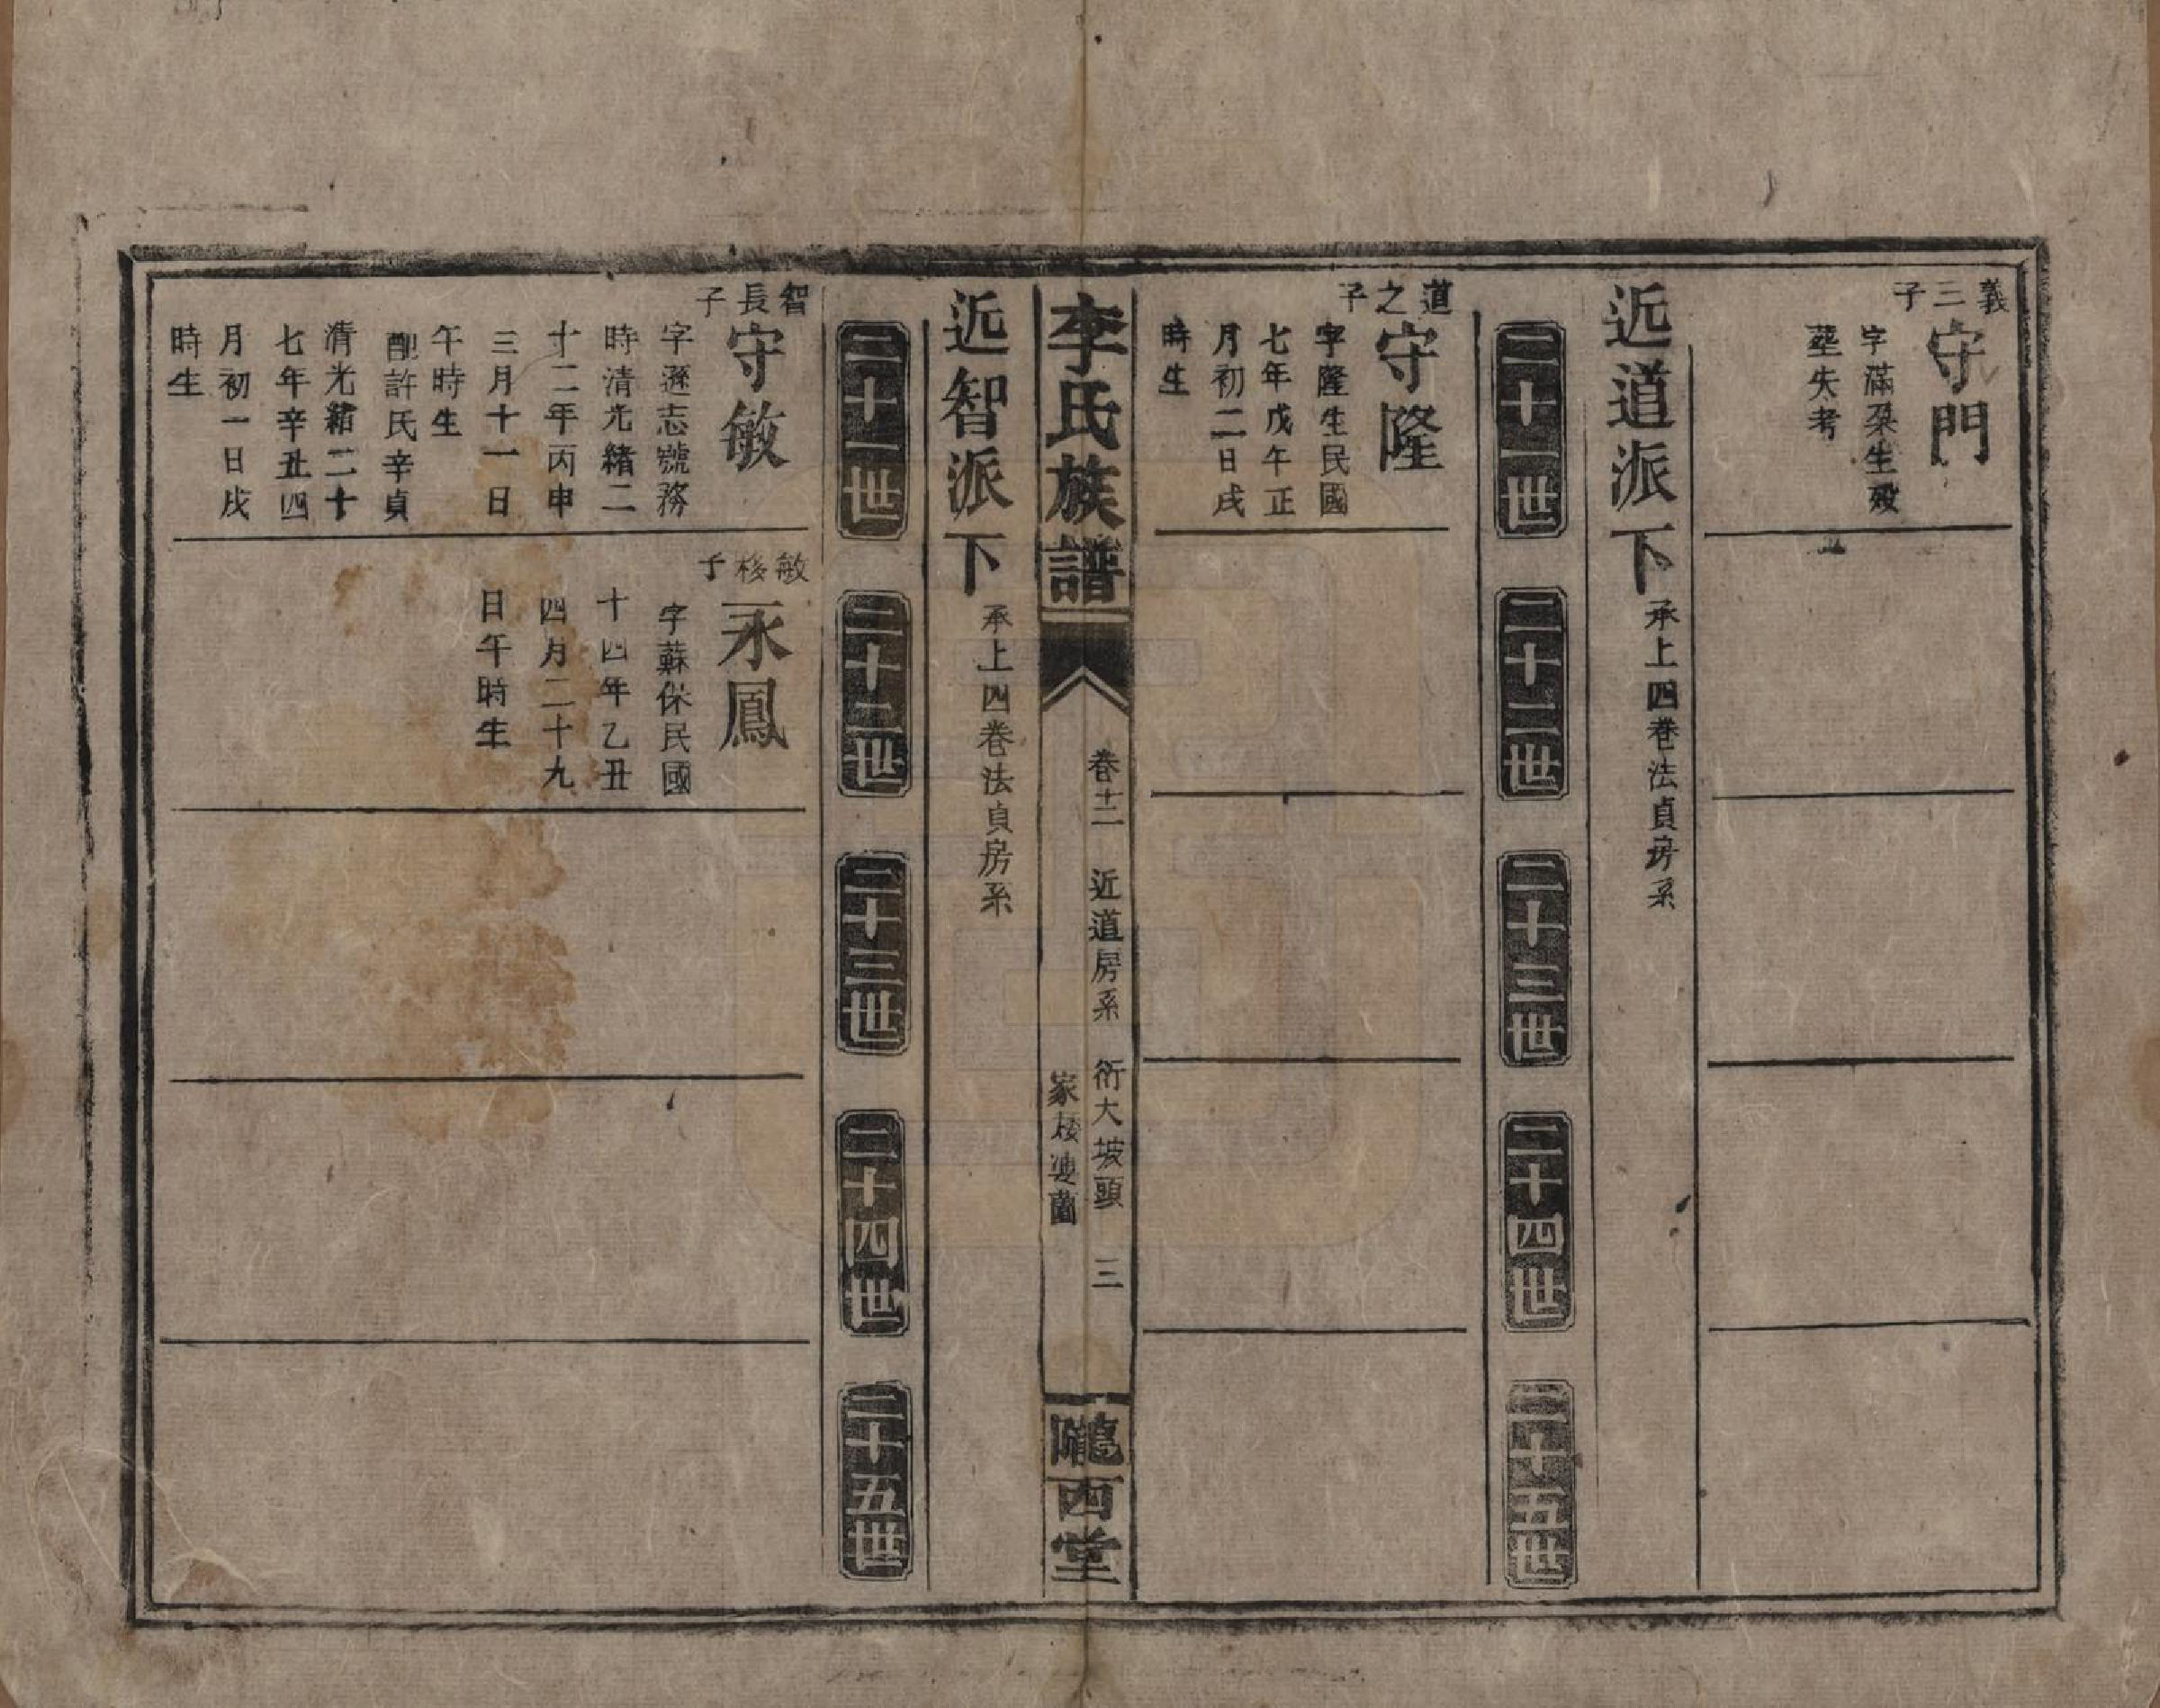 義三子
守門
字滿朶生殁
塟失考
近道派下
承上四巷法貞房系
二十一世
二十二世
二十三世
二十四世
二十五世
道之子
守隆
字隆生民國
七年戊午正
月初二日戌
時生
李氏族譜
卷十二 近道房系 衍大坡頭 三
家棱
隴西堂
近智派下
承上四巷法貞房系
二十一世
二十二世
二十三世
二十四世
二十五世
智長子
守敏
字遜志號務
時清光緒二
十二年丙申
三月十一日
午時生
配許氏辛貞
清光緒二十
七年辛丑四
月初一日戌
時生
敏子
永鳳
字蘇保民國
十四年乙丑
四月二十九
日午時生